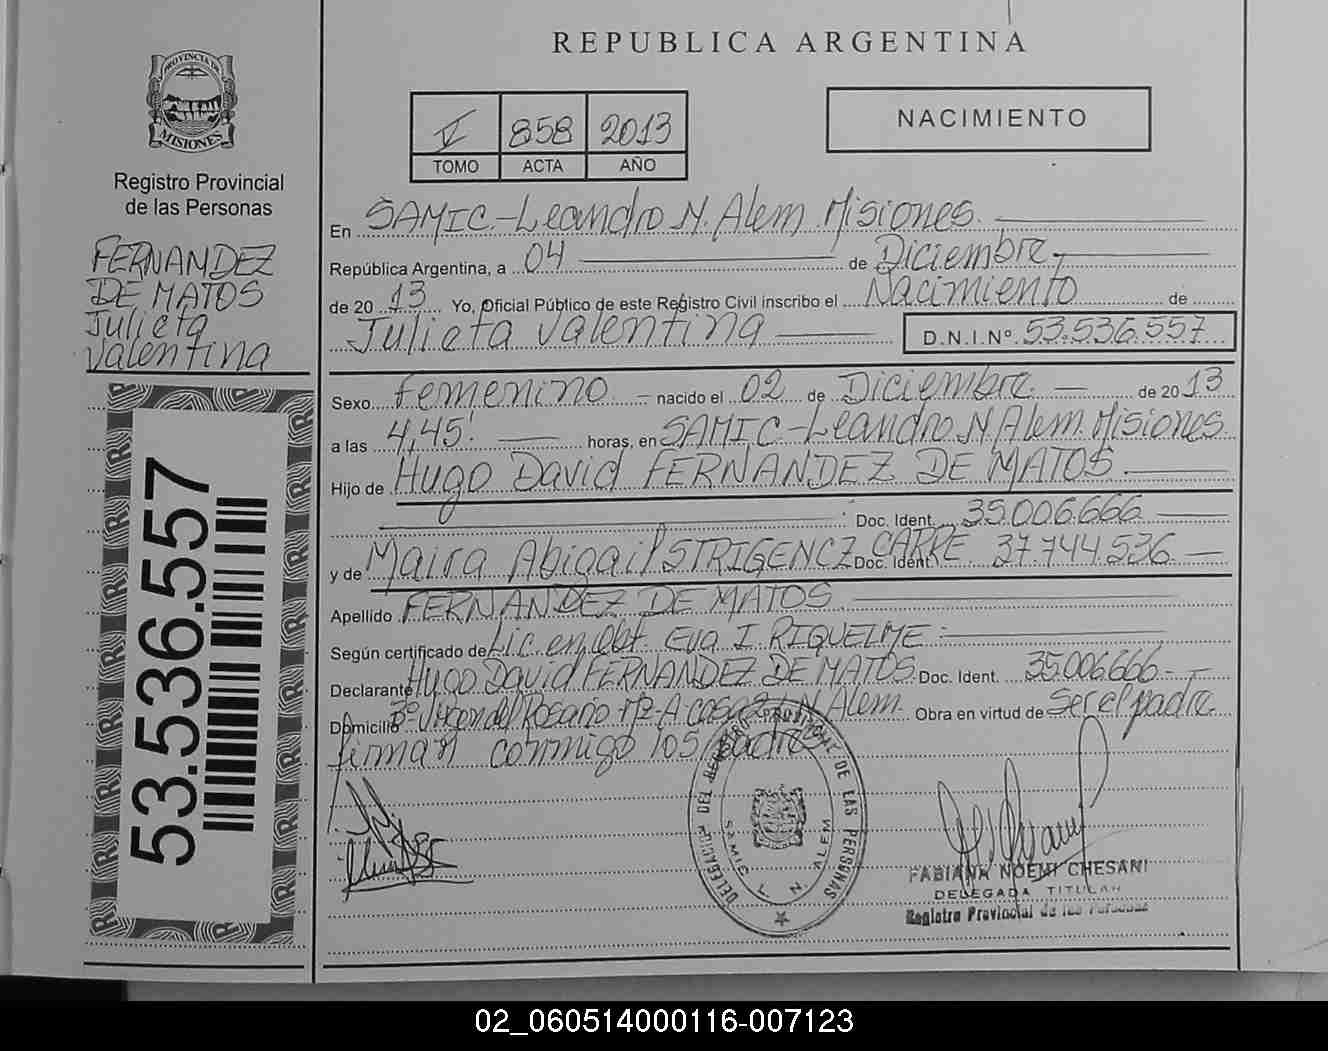 REPUBLICA ARGENTINA
PROVINCIA DE
MISIONES
Registro Provincial
de las Personas
FERNANDEZ
DE MATOS
Julieta
Valentina
53.536.557
V 858 2013
TOMO ACTA AÑO
NACIMIENTO
En SAMIC.-Leandro N. Alem. Misiones.
República Argentina, a 04 de Diciembre
de 2013 Yo, Oficial Público de este Registro Civil inscribo el Nacimiento de
Julieta Valentina D.N.I.Nº. 53.536.557
Sexo Femenino nacido el 02 de Diciembre de 2013
a las 4,45 horas, en SAMIC.-Leandro N Alem. Misiones
Hijo de Hugo David FERNANDEZ DE MATOS
Doc. Ident. 35.006.666
y de Maira Abigail STRIGENCZ CARRE Doc. Ident 37.744.536
Apellido FERNANDEZ DE MATOS
Según certificado de Lic en Obt. Eva I. RIQUELME
Declarante Hugo David FERNANDEZ DE MATOS. Doc. Ident. 35.006.666
Domicilio Bº Virgen del Rosario Mz-A casa L.N Alem. Obra en virtud de Ser el padre
firman conmigo los padres
DELEGACION DEL REGISTRO PROVINCIAL DE LAS PERSONAS
SAMIC L. N. ALEM
FABIANA NOEMI CHESANI
DELEGADA TITULAR
Registro Provincial de las Personas
02_060514000116-007123